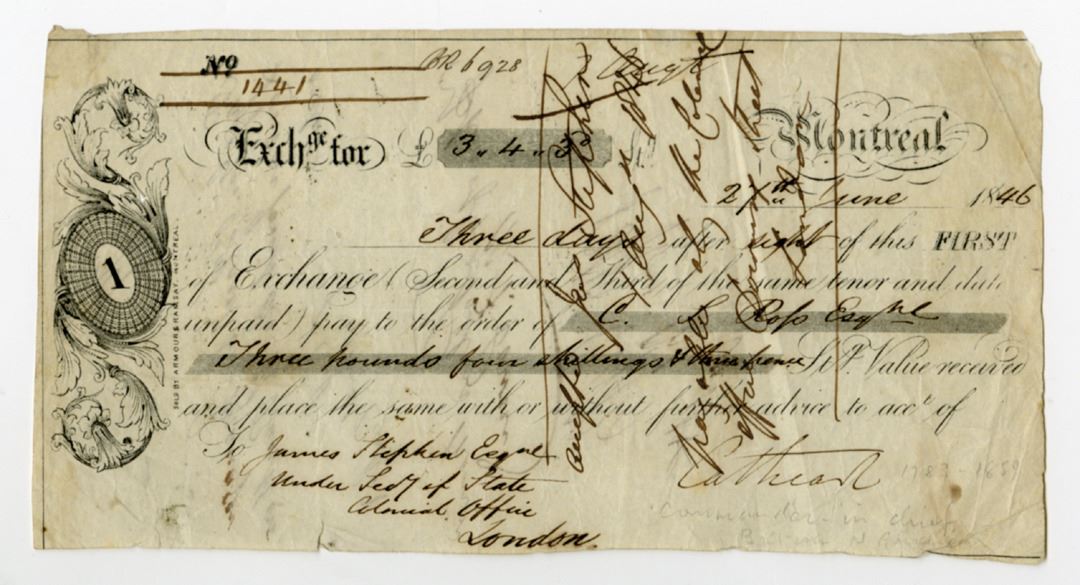 No 1441
6928
Augt
Exchge for £ 3 " 4 " 3d St.g Montreal
27th June 1846
Three days after sight of this FIRST
of Exchange (Second and Third of the same tenor and date
unpaid) pay to the order of C. Ross Esqre
Three pounds four shillings & three pence St.g Value received
and place the same with or without further advice to acct of
Cathcart
1783 - 1859
Commander in chief
British N America
To James Stephen Esqre
Under Secy of State
Colonial Office
London.
1
SOLD BY ARMOUR & RAMSAY MONTREAL
accepted Jas Stephen
payable at the Colonial
office Downing Street
London